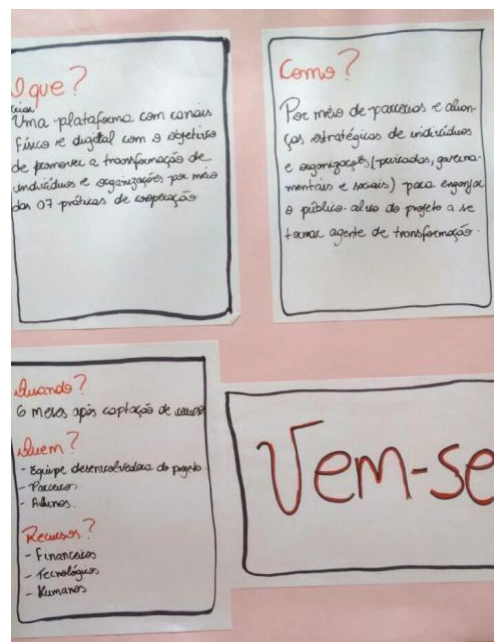 O que?
criar
Uma plataforma com canais
físico e digital com o objetivo
de promover a transformação de
indivíduos e organizações por meio
das 07 práticas de cooperação
Como?
Por meio de parcerias e alian-
ças estratégicas de indivíduos
e organizações (privadas, governa-
mentais e sociais) para engajar
o público-alvo do projeto a se
tornar agente de transformação.
Quando?
6 meses após captação de
Quem?
- Equipe desenvolvedora do projeto
- Parceiros
- Alunos
Recursos?
- Financeiros
- Tecnológicos
- Humanos
Vem-se